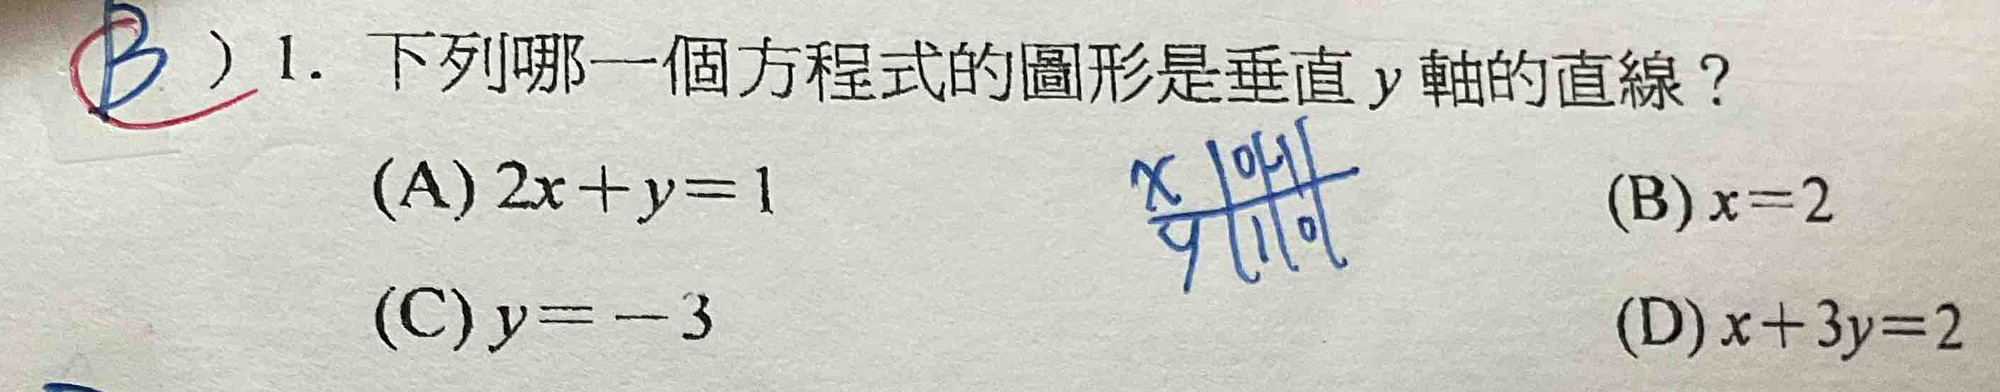 B ) 1. 下列哪一個方程式的圖形是垂直 y 軸的直線？
(A) 2x＋y＝1
(B) x＝2
x 0
y 1 0
(C) y＝－3
(D) x＋3y＝2